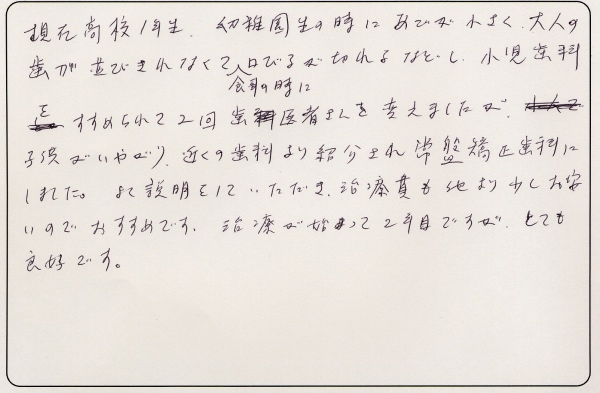 現在高校1年生。幼稚園生の時にあごが小さく、大人の
歯が並びきれなくて口でるが切れるなどし、小児歯科
食事の時に
を すすめられて2回歯科医者さんを変えましたが、
子供がいやがり、近くの歯科より紹介され常盤矯正歯科に
しました。よく説明をしていただき、治療費も他より少しお安
いのでおすすめです。治療が始まって2年目ですが、とても
良好です。